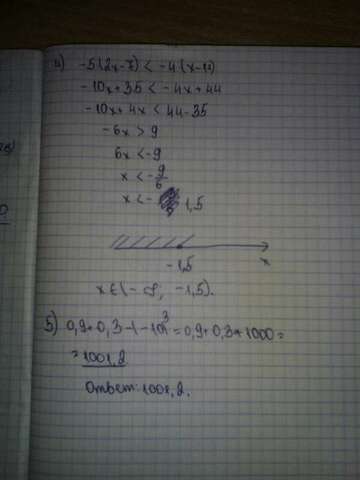 4) -5(2x-7) < -4(x-11)
-10x+35 < -4x+44
-10x+4x < 44-35
-6x > 9
6x < -9
x < -9/6
x < - 1,5
-1,5
x
x∈(-∞, -1,5).
5) 0,9+0,3-(-10)³=0,9+0,3+1000=
=1001,2
Ответ: 1001,2.